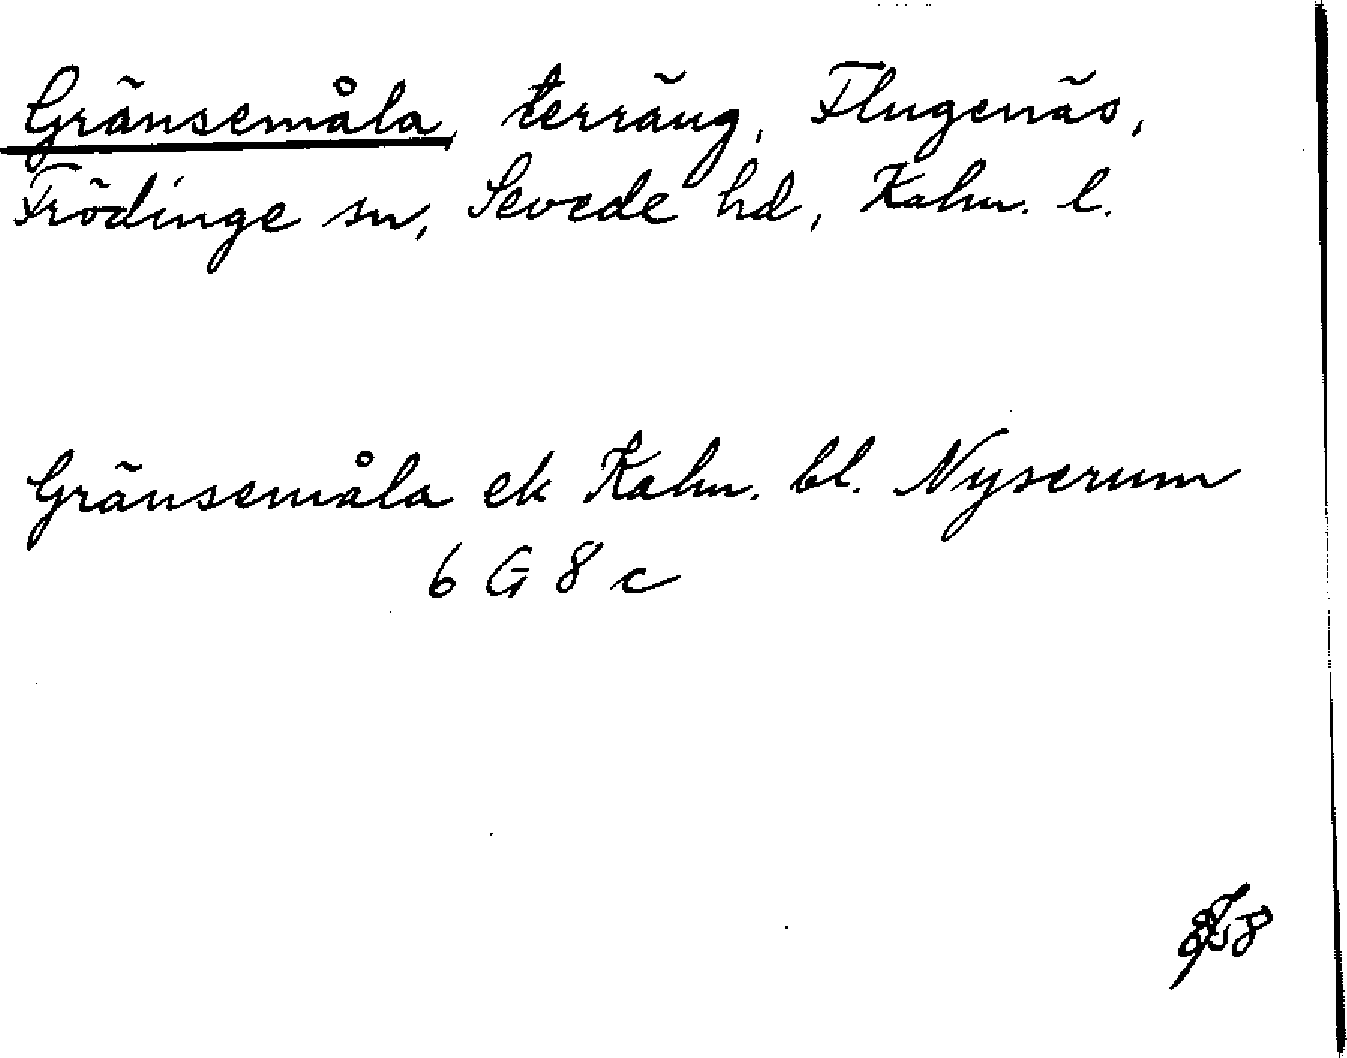 Gränsemåla, terräng, Flugenäs,
Frödinge sn, Sevede hd, Kalm. l.
Gränsemåla ek Kalm. bl. Nyserum
6 G 8 c